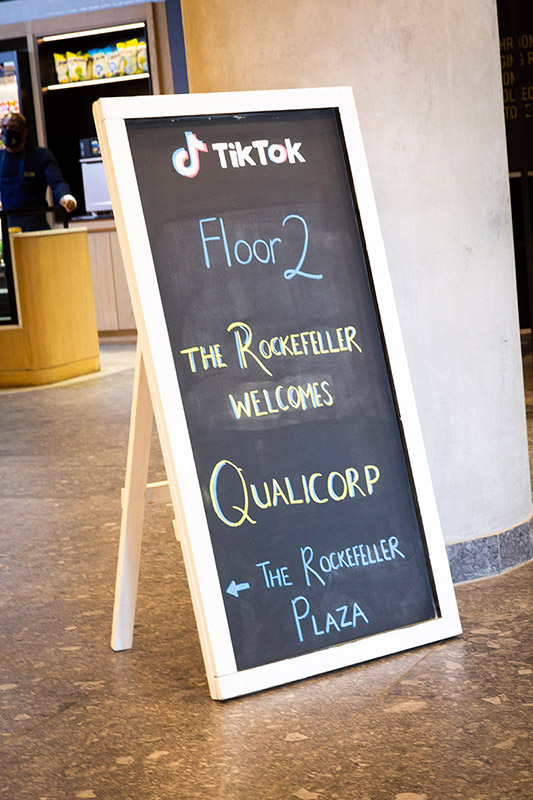 TikTok
Floor 2
THE ROCKEFELLER
WELCOMES
QUALICORP
← THE ROCKEFELLER
PLAZA